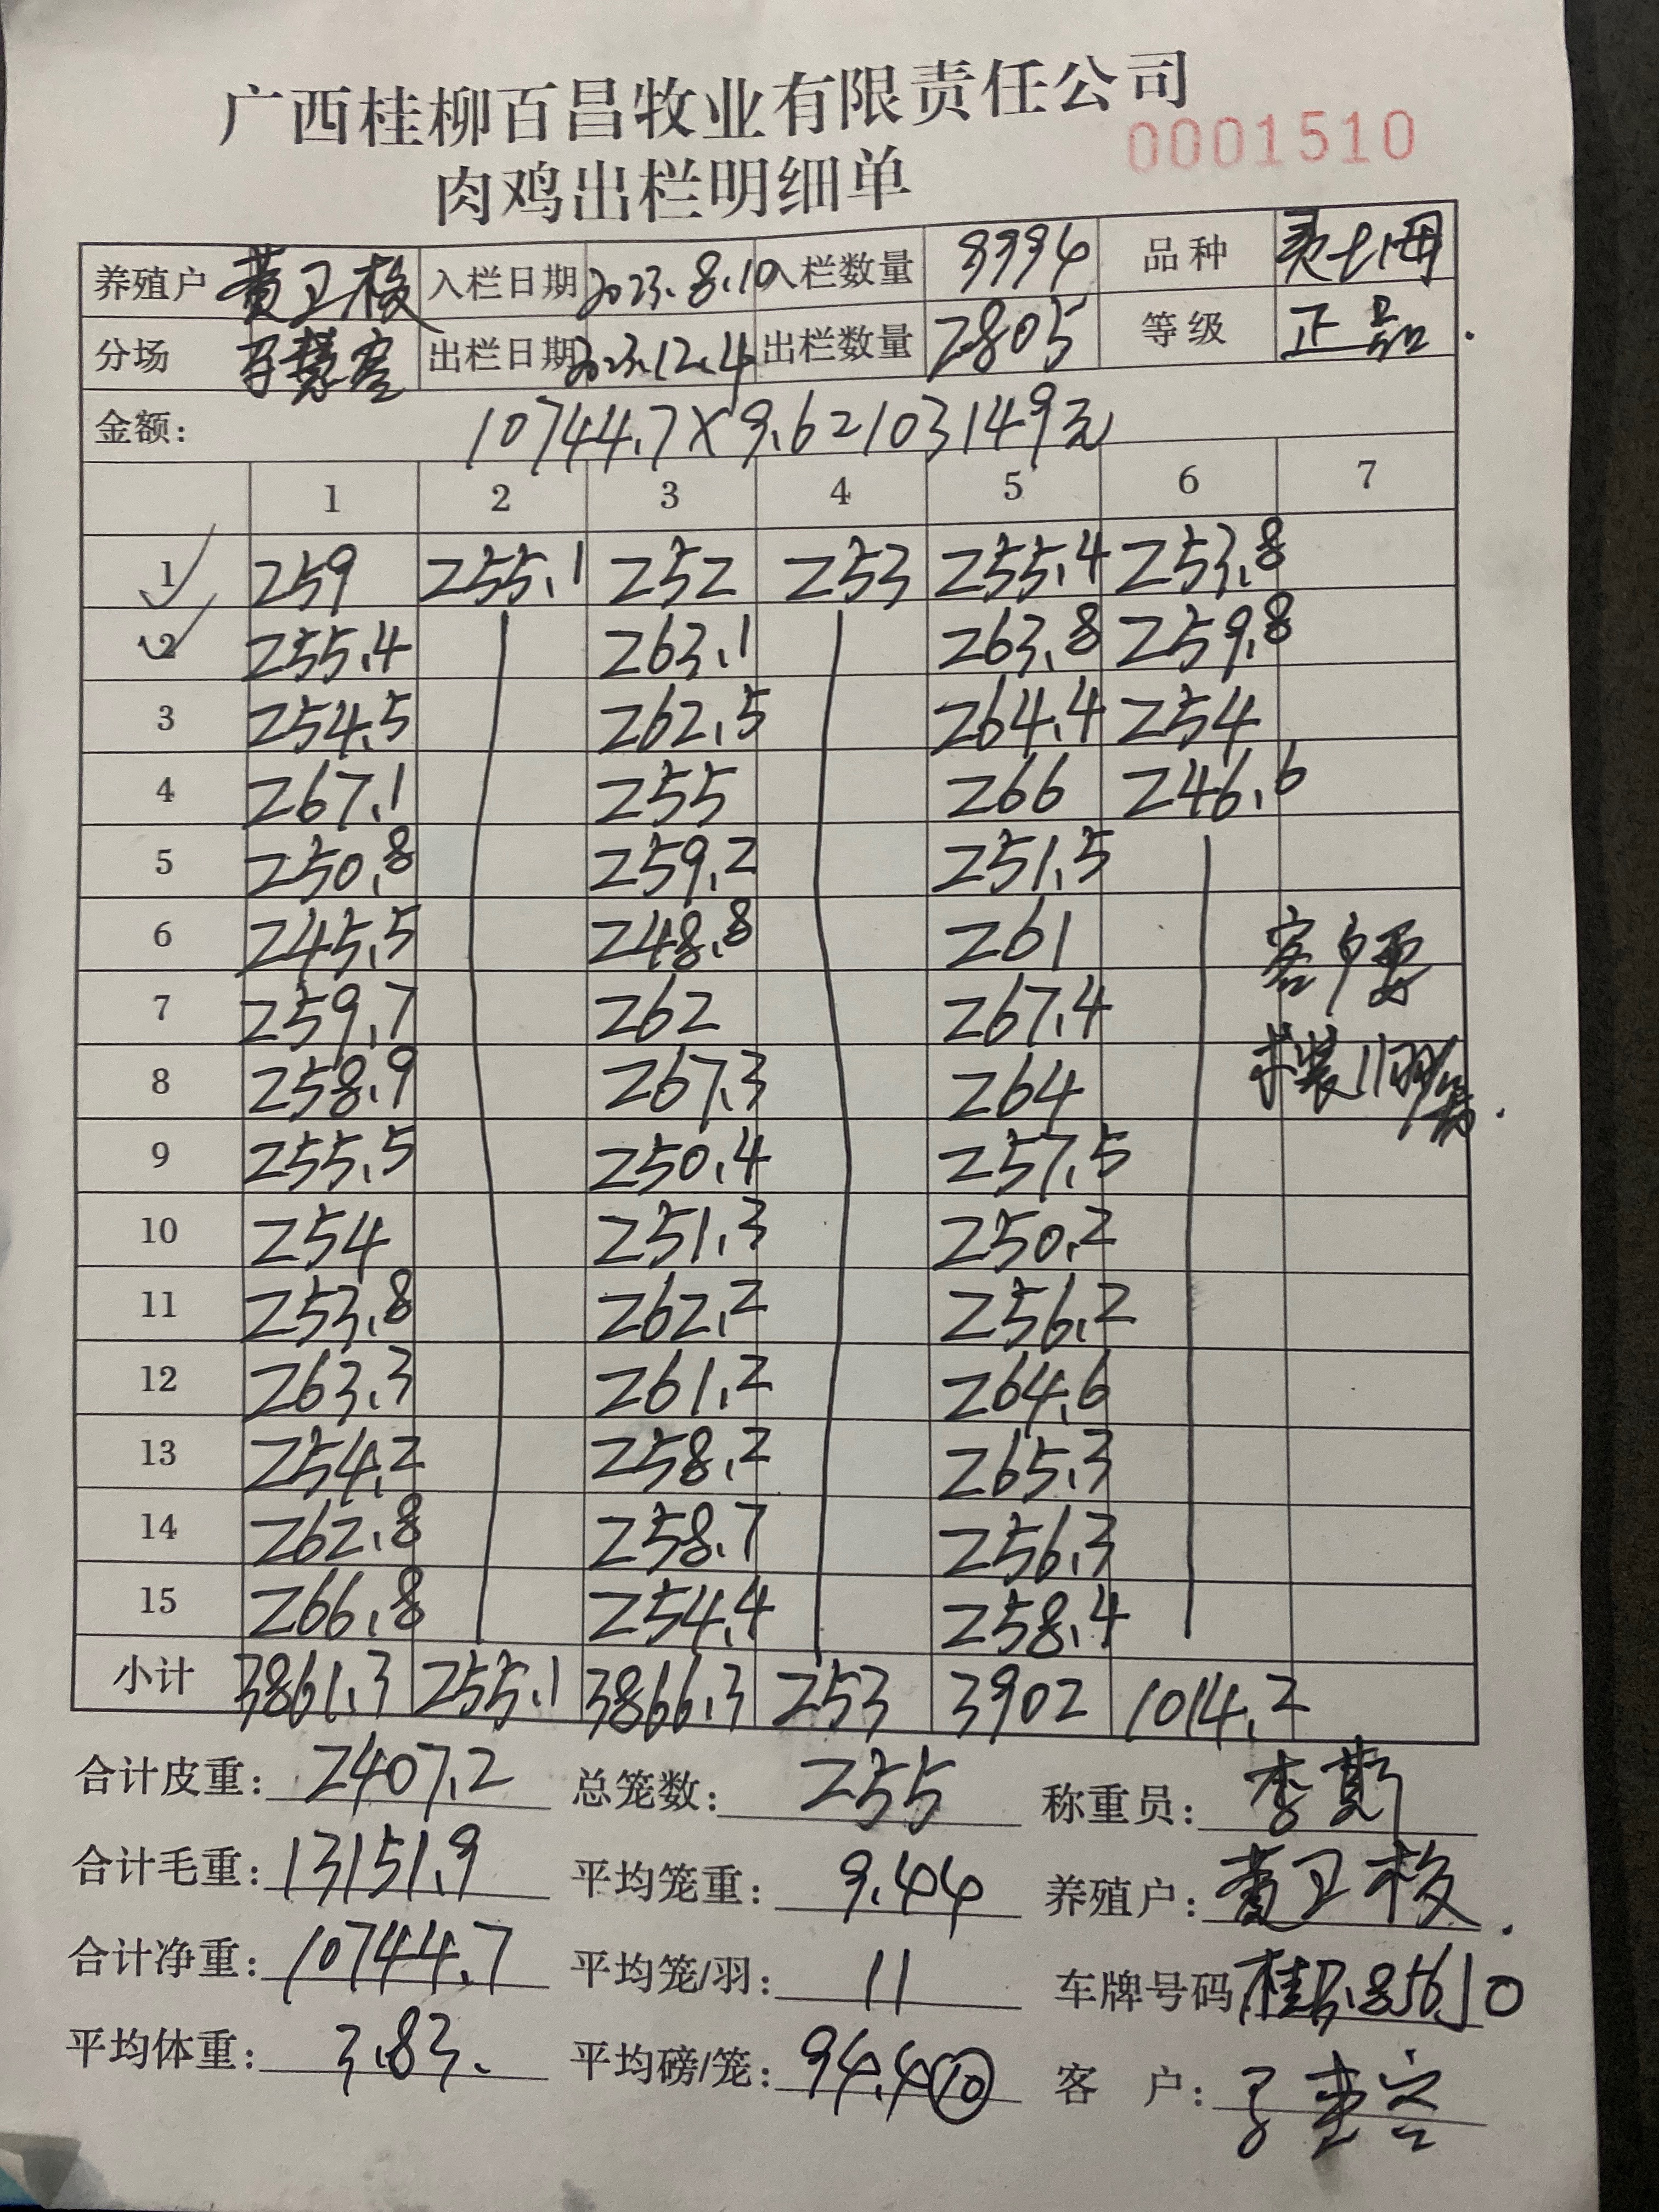 广西桂柳百昌牧业有限责任公司
0001510
肉鸡出栏明细单
养殖户 黄卫梅 入栏日期 2023.8.10 入栏数量 3994 品种
分场 出栏日期 2023.12.4 出栏数量 2805 等级 正品.
金额: 10744.7×9.62 103149元
1 2 3 4 5 6 7
1 259 255.1 252 253 255.4 253.8
2 255.4 263.1 263.8 259.8
3 254.5 262.5 264.4 254
4 267.1 255 266 246.6
5 250.8 259.2 251.5
6 245.5 248.8 261 客户要
7 259.7 262 267.4
8 258.9 267.3 264 求装11羽/笼.
9 255.5 250.4 257.5
10 254 251.3 250.2
11 253.8 262.2 256.2
12 263.3 261.2 264.6
13 254.2 258.2 265.3
14 262.8 258.7 256.3
15 266.8 254.4 258.4
小计 3861.3 255.1 3866.3 253 3902 1014.2
合计皮重: 2407.2 总笼数: 255 称重员: 李
合计毛重: 13151.9 平均笼重: 9.44 养殖户: 黄卫梅.
合计净重: 10744.7 平均笼/羽: 11 车牌号码
平均体重: 3.83. 平均磅/笼: 94.4 ⑩ 客 户: